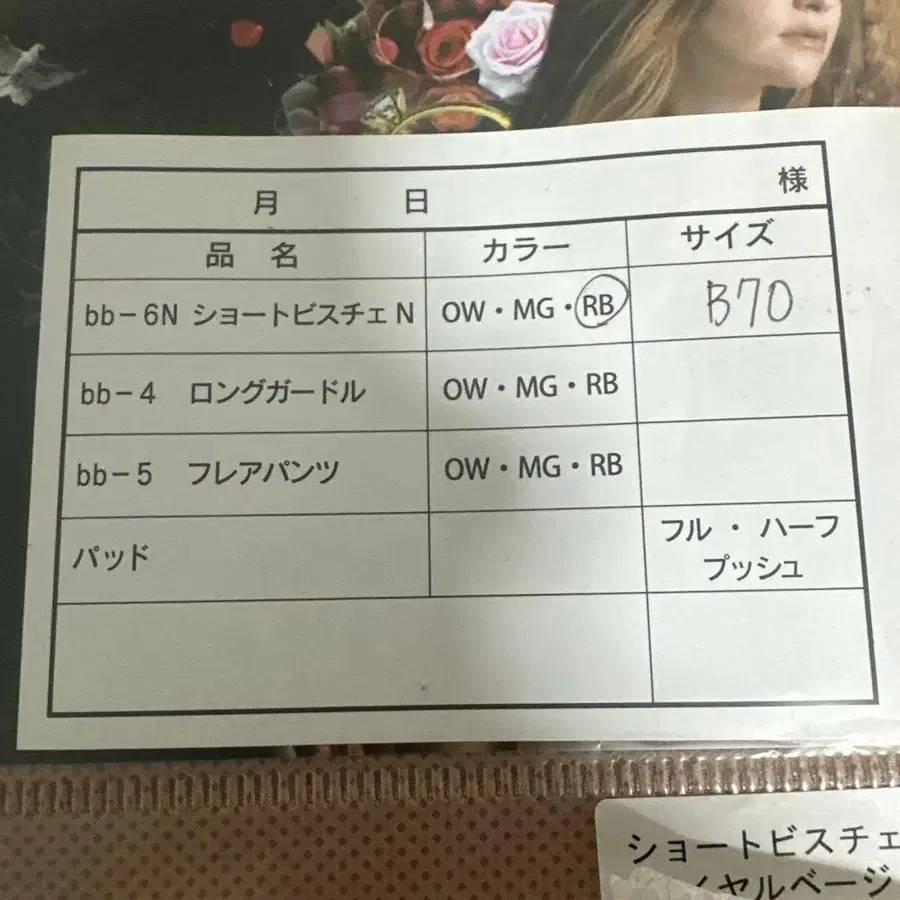 月 日 様
品 名 カラー サイズ
bb-6N ショートビスチェN OW・MG・RB B70
bb-4 ロングガードル OW・MG・RB
bb-5 フレアパンツ OW・MG・RB
パッド フル ・ ハーフ
プッシュ
ショートビスチェ
イヤルベージ